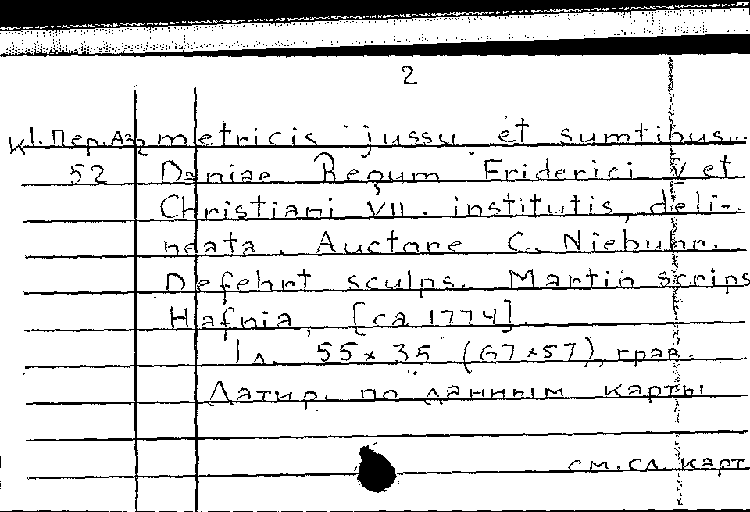 2
К1.Пер.Аз2 metricis jussu et sumtibus
52 Daniae Regum Friderici V et
Christiani VII. institutis, deli-
neata. Auctore C. Niebuhr.
Defehrt sculps. Martin scrips
Hafnia, [ca 1774]
1 л. 55×35 (67×57), грав.
Датир. по данным карты
см. сл. карт